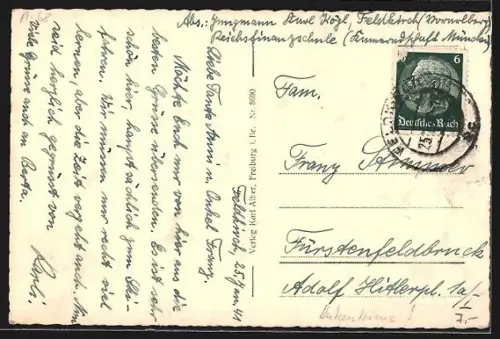 Abs.: Jungmann Karl Kögl, Feldkirch/Vorarlberg
Reichsfinanzschule (Kameradschaft München)
Feldkirch, 25. Jan 41
Liebe Tante Anni u. Onkel Franz.
Möchte Euch nur von hier aus die
besten Grüße übersenden. Es ist sehr
schön hier, hauptsächlich zum Ski-
fahren. Wir müssen nur recht viel
lernen, aber die Zeit vergeht auch. Nun
seid herzlich gegrüßt von
Karli.
Viele Grüße auch an Berta.
Verlag Karl Alber, Freiburg i. Br. Nr. 8090
6
Deutsches Reich
Fam.
Franz
Fürstenfeldbruck
Adolf Hitlerpl. 1a/I
7,-